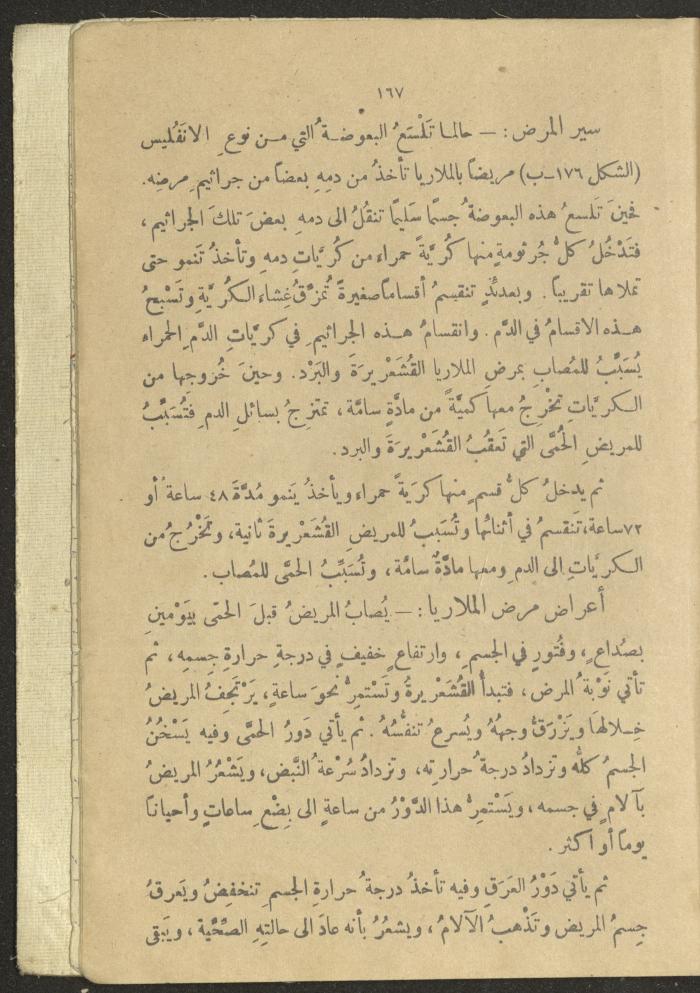 ١٦٧
سير المرض : — حالما تَلْسَعُ البعوضةُ التي من نوعِ الانَفُليس
(الشكل ١٧٦ـب) مريضاً بالملاريا تأخذُ من دمِهِ بعضاً من جراثيمِ مرضِه.
فحينَ تَلسعُ هذه البعوضةُ جسمًا سَليمًا تنقلُ الى دمهِ بعضَ تلكَ الجراثيم ،
فتَدْخُلُ كلُّ جُرثومةٍ منها كُرَيَّةً حمراء من كُرَيَّاتِ دمهِ وتأخذُ تَنمو حتى
تملاها تقريباً . وبعدئذٍ تنقسمُ أقساماً صغيرةً تُمزّقُ غِشاءَ الكُريَّةِ وتَسْبحُ
هذه الاقسامُ في الدَّم . وانقسامُ هذه الجراثيمِ في كريَّاتِ الدَّمِ الحمراء
يُسَبِّبُ للمُصابِ بمرضِ الملاريا القُشَعْرِيرَةَ والبَرْد. وحينَ خُروجها من
الكريَّاتِ تَخْرجُ معها كميَّةً من مادَّةٍ سامَّة ، تمتزجُ بسائلِ الدمِ فَتُسَبِّبُ
للمريضِ الحُمَّى التي تَعقُبُ القُشَعْرِيرَةَ والبرد.
ثم يدخلُ كلُّ قسمٍ منها كرَيَةً حمراء ويأخذُ يَنمو مُدَّةَ ٤٨ ساعةً أو
٧٢ساعة،تَنقسمُ في أثنائها وتُسَببُ للمريضِ القُشَعْرِيرةَ ثانية، وتَخْرُجُ من
الكريَّاتِ الى الدمِ ومعها مادَّةٌ سامَّة ، وتُسَبِّبُ الحمَّى للمُصاب .
أعراض مرض الملاريا : — يُصابُ المريضُ قبلَ الحمّى بيَوْمينِ
بصُداعٍ، وفُتورٍ في الجسمِ ، وارتفاعٍ خفيفٍ في درجةِ حرارةِ جسمِه ، ثم
تأتي نَوْبةُ المرض ، فتبدأُ القُشَعْرِيرةُ وتَسْتمرُّ نحوَ ساعةٍ ، يَرْتَجِفُ المريضُ
خِلالَها ويَزْرَقُّ وجهُهُ ويُسرعُ تنفُّسُهُ . ثم يأتي دَورُ الحمَّى وفيه يَسْخُنُ
الجسمُ كلُّه وتزدادُ درجةُ حرارتِه، وتزدادُ سُرْعةُ النَّبض، ويَشْعُرُ المريضُ
بآلامٍ في جسمه ، ويَسْتمِرُّ هذا الدَّوْرُ من ساعةٍ الى بِضْعِ ساعاتٍ وأحياناً
يوماً أو اكثر .
ثم يأتي دَوْرُ العَرَقِ وفيه تأخذُ درجةُ حرارةِ الجسمِ تنخفِضُ ويَعرقُ
جِسمُ المريض وتَذْهبُ الآلامُ ، ويشعُرُ بأنه عادَ الى حالتِهِ الصِّحِّية ، ويَبقى